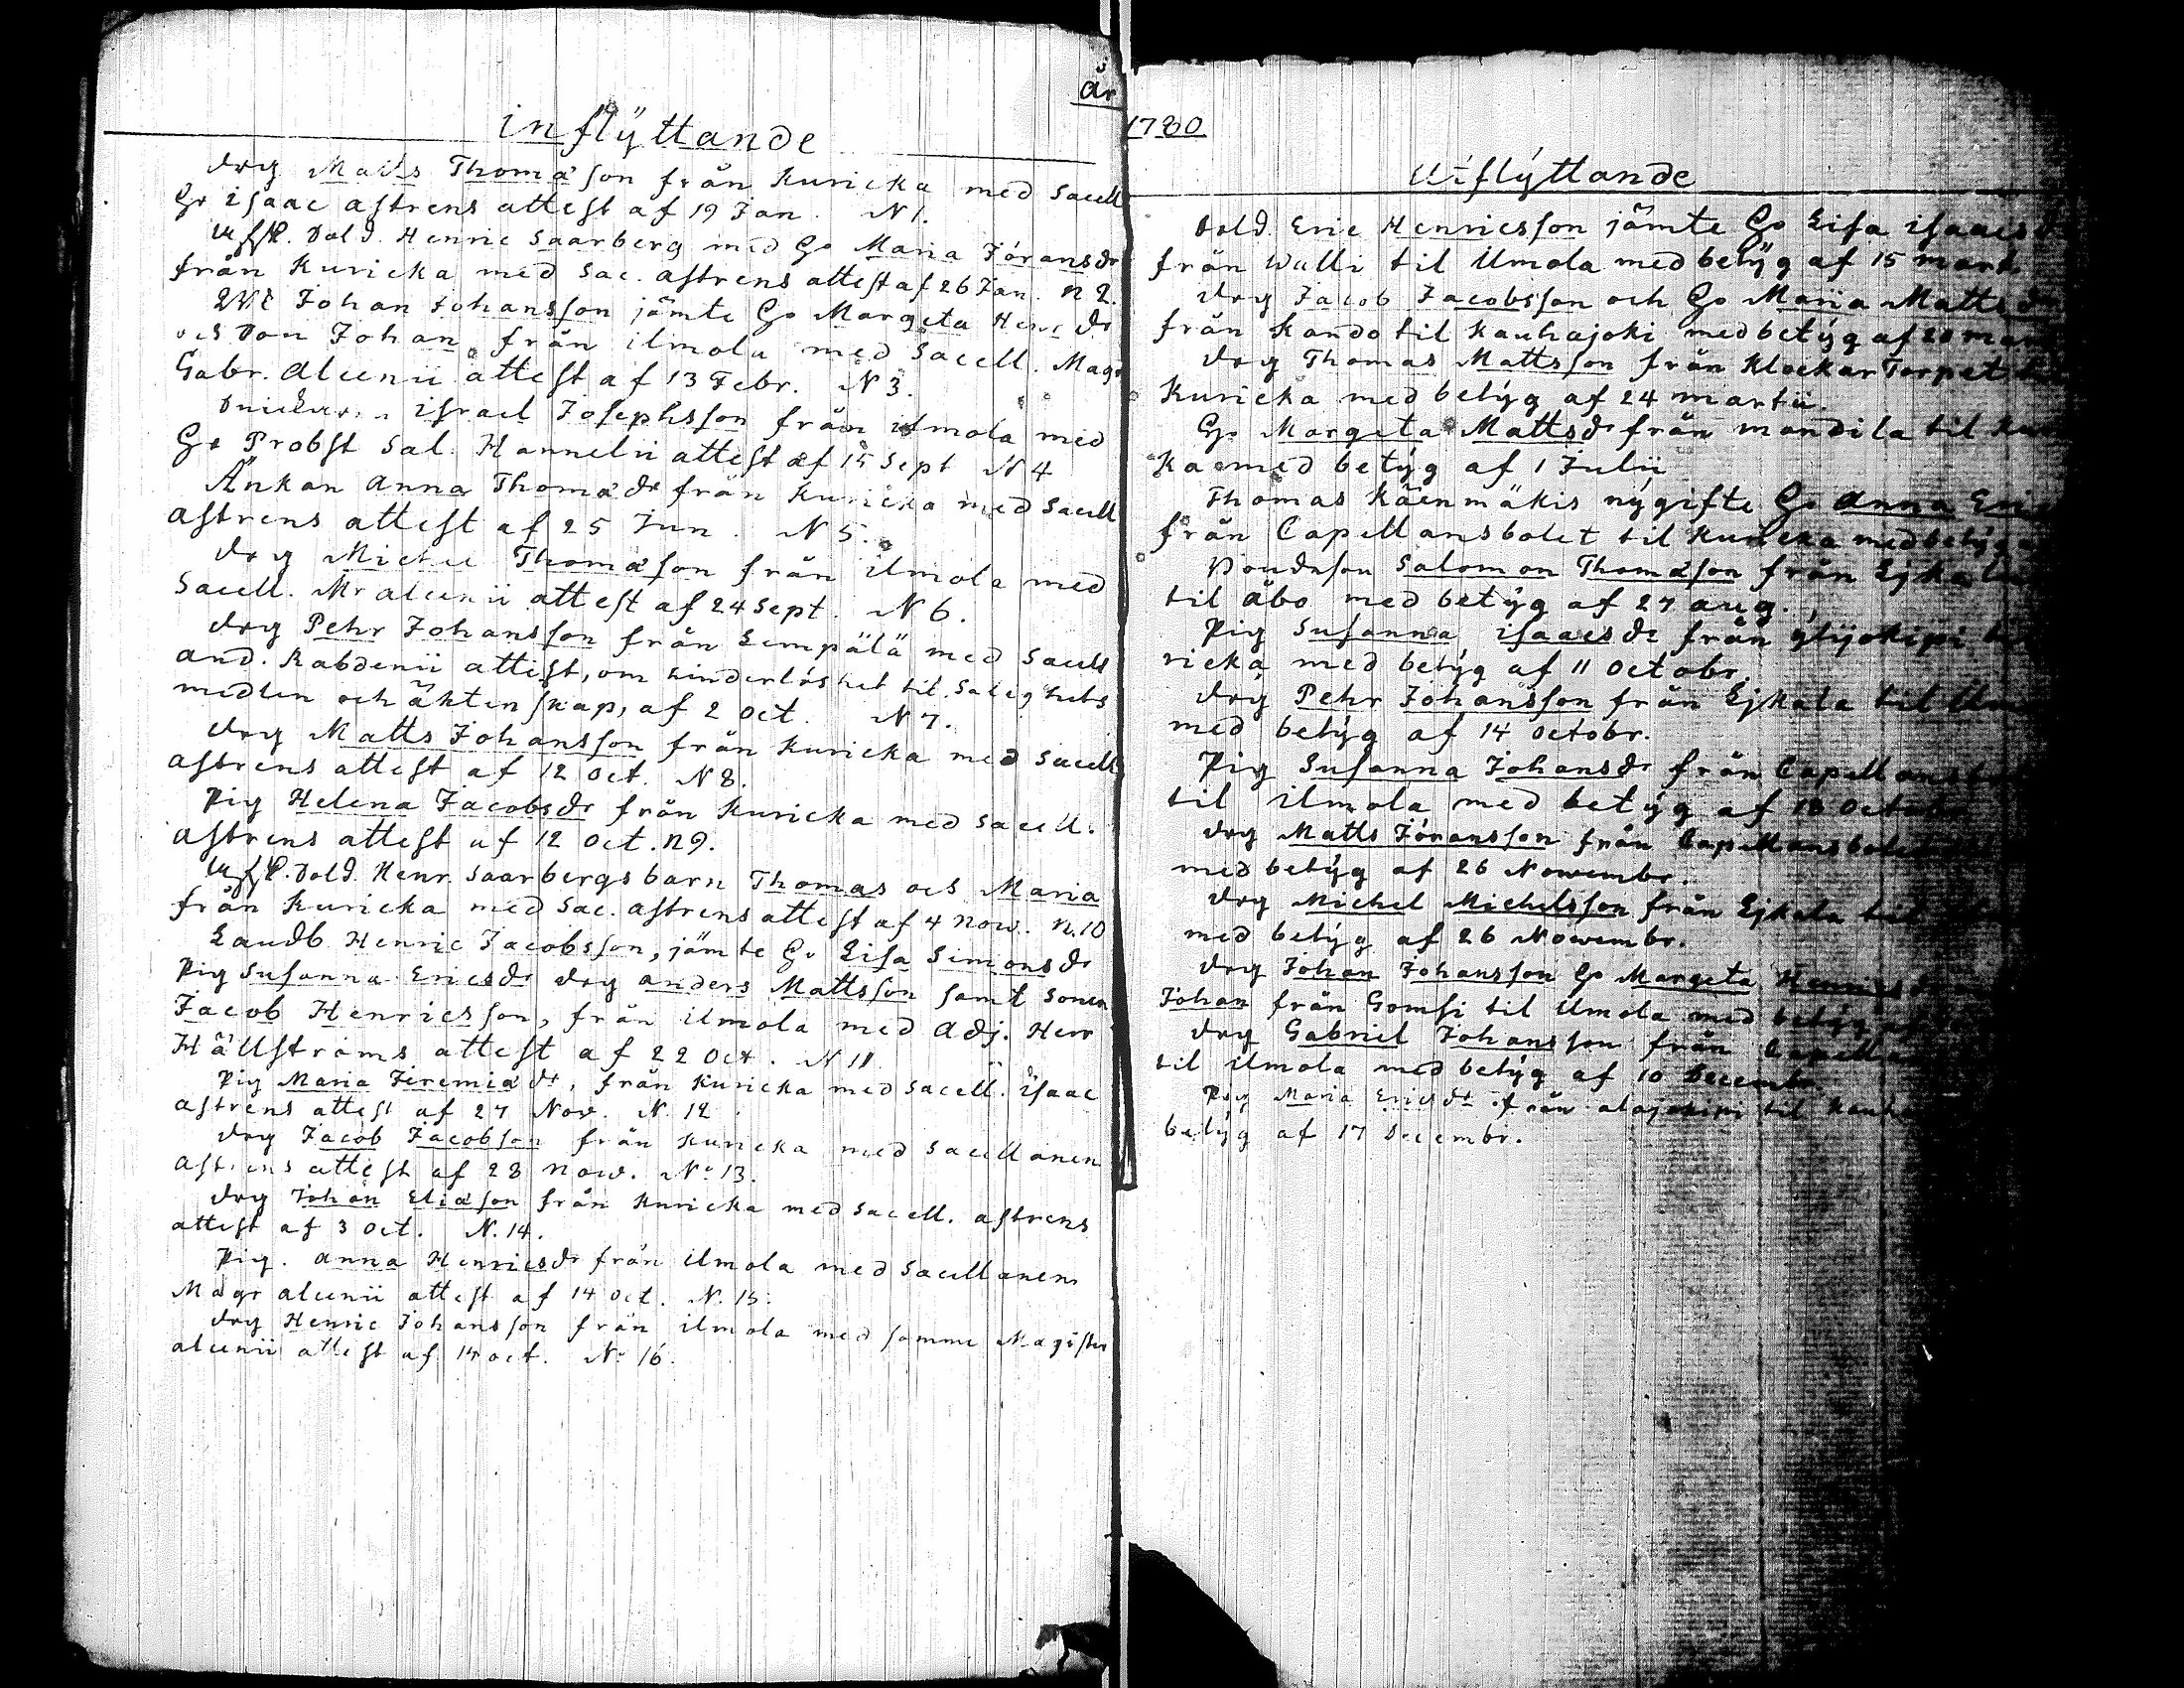 år
inflÿttande
drg Matts Thomæson från Kuricka med Sacell
Hr isaac astrens attest af 19 Jan. N 1.
Afsk. Sold. Henric Saarberg med Ho Maria Jöransdr
från Kuricka med Sac. astrens attest af 26 Jan. N 2.
Johan Johansson jämte Ho Margeta Henr dr
och Son Johan från ilmola med Sacell. Magr
Gabr. Alcenii attest af 13 Febr. N 3.
israel Josephsson från ilmola med
Hr Probst Sal. Hannelii attest af 15 Sept N 4
Änkan Anna Thomædr från Kuricka med Sacell
astrens attest af 25 Jun. N 5.
drg Michel Thomæson från ilmola med
Sacell. Mr alcenii attest af 24 Sept. N 6.
drg Pehr Johansson från Lempälä med Sacell
and. Rabdenii attest, om hinderlöshet til Salighets
medlen och äktenskap, af 2 Oct. N 7.
drg Matts Johansson från Kuricka med Sacell
astrens attest af 12 Oct. N 8.
Pig Helena Jacobsdr från Kuricka med Sacell.
astrens attest af 12 Oct. N 9.
Afsk. Sold. Henr. Saarbergs barn Thomas och Maria
från Kuricka med Sac. astrens attest af 4 Now. N. 10
Landb Henric Jacobsson, jämte Ho Lisa Simonsdr
Pig Susanna Ericsdr drg anders Mattsson samt Sonen
Jacob Henricsson, från ilmola med Adj. Herr
Hällströms attest af 22 Oct. N 11
Pig Maria Jeremiædr, från Kuricka med Sacell. isaac
astrens attest af 27 Nov. N. 12
drg Jacob Jacobson från Kuricka med Sacellanen
astrens attest af 28 Now. No 13.
drg Johan Eliæson från Kuricka med Sacell. astrens
attest af 3 Oct. N. 14.
Pig. Anna Henricsdr från ilmola med Sacellanens
Magr alcenii attest af 14 Oct. N. 15.
drg Henric Johansson från ilmola med samme Magister
alcenii attest af 14 oct. No 16.
1780
Utflÿttande
Sold. Eric Henricsson jämte Ho Lisa isaacs
från Walli til ilmola med betÿg af 15 mart.
drg Jacob Jacobsson och Ho Maria Matts
från Kando til Kauhajoki med betÿg af 20
drg Thomas Mattsson från Klockar Torpet
Kuricka med betÿg af 24 martii
Ho Margeta Mattsdr från mandila til
ka med betÿg af 1 Julii
Thomas Käenmäkis nÿgifte Ho Anna
från Capellansbolet til Kuricka med betÿg
Salomon Thomæson från Ejkala
til åbo med betÿg af 27 aug.
Pig Susanna isaacsdr från ÿlijokipi
ricka med betÿg af 11 Octobr.
drg Pehr Johansson från Ejkala til
med betÿg af 14 Octobr.
Pig Susanna Johansdr från Capellans
til ilmola med betÿg af 18
drg Matts Jöransson från Capellansbolet
med betÿg af 26 Nowembr.
drg Michel Michelsson från Ejkala til
med betÿg af 26 Nowembr.
drg Johan Johansson Ho Margeta Henrics
Johan från Gomsi til ilmola med betÿg
drg Gabriel Johansson från
til ilmola med betÿg af 10 Decembr.
Pig Maria Ericsdr från alajokipi til
betÿg af 17 Decembr.